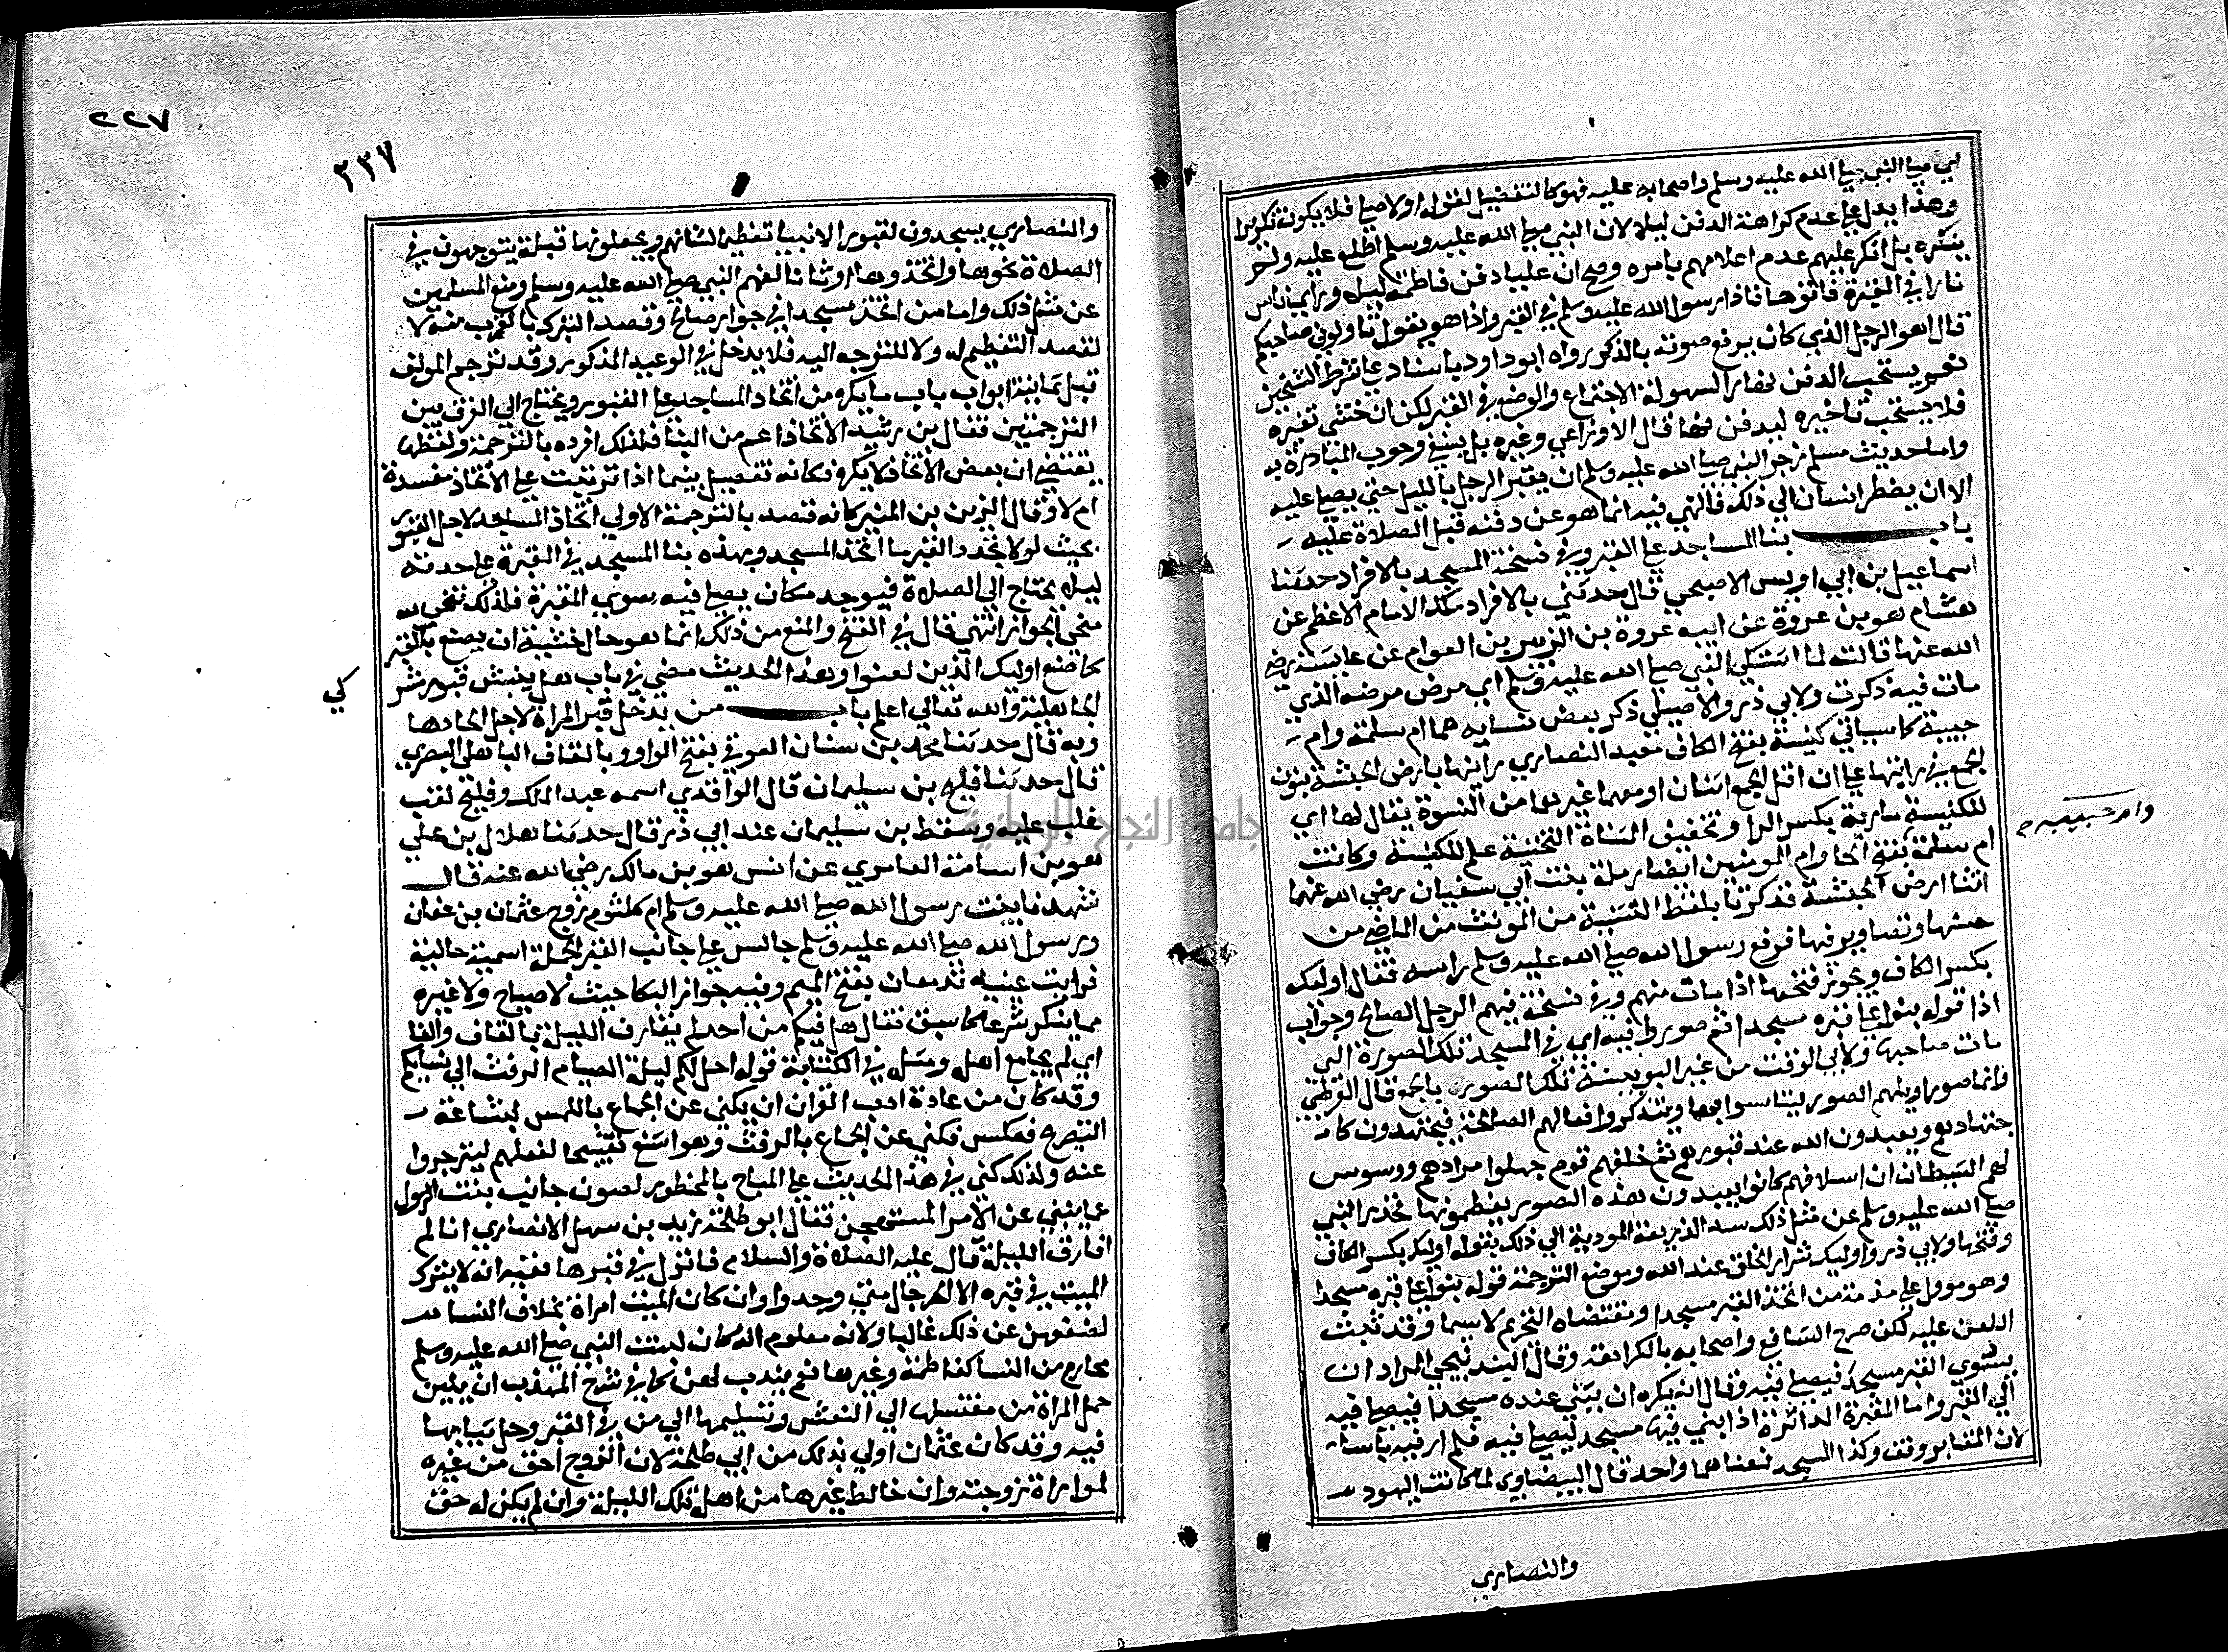 اي صلى النبي صلى الله عليه وسلم واصحابه عليه فهو كالتفصيل لقوله اولا صلى فلا يكون تكريرا
وهذا يدل على عدم كراهة الدفن ليلا لان النبي صلى الله عليه وسلم اطلع عليه ولم
ينكره بل انكر عليهم عدم اعلامهم بامره وصح ان عليا دفن فاطمة ليلا وراي ناس
نارا في المقبرة فاتوها فاذا رسول الله عليه وسلم في القبر واذا هو يقول ناولوني صاحبكم
قال هو الرجل الذي كان يرفع صوته بالذكر رواه ابو داود باسناد على شرط الشيخين
نعم يستحب الدفن نهارا لسهولة الاجتماع والوضع في القبر لكن ان خشي تغيره
فلا يستحب تاخيره ليدفن نهارا قال الاوزاعي وغيره بل ينبغي وجوب المبادرة به
واما حديث مسلم زجر النبي صلى الله عليه وسلم ان يقبر الرجل بالليل حتي يصلى عليه
الا ان يضطر انسان الي ذلك فالنهي فيه انما هو عن دفنه قبل الصلاة عليه
باب بنا المساجد على القبر وفي نسخة المسجد بالافراد حدثنا
اسماعيل بن ابي اويس الاصبحي قال حدثني بالافراد مالك الامام الاعظم عن
هشام هو بن عروة عن ابيه عروة بن الزبير بن العوام عن عايشة رضي
الله عنها قالت لما اشتكي النبي صلى الله عليه وسلم اي مرض مرضه الذي
مات فيه ذكرت ولابي ذر والاصيلي ذكر بعض نسايه هما ام سلمة وام
حبيبة كما سياتي كنيسة بفتح الكاف معبد النصاري راينها بارض الحبشة بنون
الجمع في راينها على ان اقل الجمع اثنان او معهما غيرهما من النسوة يقال لها اي
للكنيسة مارية بكسر الرا وتخفيف المثناة التحتية علم للكنيسة وكانت
ام سلمة بفتح الحا وام المومنين ايضا رملة بنت ابي سفيان رضي الله عنهما
وام حبيبه
اتتا ارض الحبشة فذكرتا بلفظ التثنية من المونث من الماضي من
حسنها وتصاوير فيها فرفع رسول الله صلى الله عليه وسلم راسه فقال اوليك
بكسر الكاف ويجوز فتحها اذا مات منهم وفي نسخة فيهم الرجل الصالح وجواب
اذا قوله بنوا على قبره مسجدا ثم صوروا فيه اي في المسجد تلك الصورة التي
مات صاحبها ولابي الوقت من غير اليونينية تلك الصور بالجمع قال القرطبي
وانما صور اوايلهم الصور ليتانسوا بها ويتذكروا افعالهم الصالحة فيجتهدون كا
جتهادهم ويعبدون الله عند قبورهم ثم خلفهم قوم جهلوا مرادهم ووسوس
لهم الشيطان ان اسلافهم كانوا يعبدون هذه الصور يعظمونها فحذر النبي
صلى الله عليه وسلم عن مثل ذلك سدا للذريعة المودية الي ذلك بقوله اوليك بكسر الكاف
وفتحها ولابي ذر واوليك شرار الخلق عند الله وموضع الترجمة قوله بنوا على قبره مسجدا
وهو مؤول على مذمة من اتخذ القبر مسجدا ومقتضاه التحريم لاسيما وقد ثبت
اللعن عليه لكن صرح الشافعي واصحابه بالكراهة وقال البندنيجي المراد ان
يسوي القبر مسجدا فيصلى فيه وقال انه يكره ان يبني عنده مسجدا فيصلى فيه
الي القبر واما المقبرة الداثرة اذا بني فيها مسجد ليصلى فيه فلم ار فيه باسا
لان المقابر وقف وكذا المسجد فمعناهما واحد قال البيضاوي لما كانت اليهود
والنصاري
٢٢٧
٢٣٧
والنصاري يسجدون لقبور الانبيا تعظيما لشانهم ويجعلونها قبلة يتوجهون في
الصلاة نحوها واتخذوها اوثانا لعنهم النبي صلى الله عليه وسلم ومنع المسلمين
عن مثل ذلك واما من اتخذ مسجدا في جوار صالح وقصد التبرك بالقرب منه لا
لقصد التعظيم له ولا للتوجه اليه فلا يدخل في الوعيد المذكور وقد ترجم المولف
قبل ثمانية ابواب باب ما يكره من اتخاذ المساجد على القبور ويحتاج الي الفرق بين
الترجمتين فقال بن رشيد الاتخاذ اعم من البنا فلذلك افرده بالترجمة ولفظها
يقتضي ان بعض الاتخاذ لا يكره فكانه تفصيل بينما اذا ترتبت على الاتخاذ مفسدة
ام لا وقال الزين بن المنير كانه قصد بالترجمة الاولي اتخاذ المساجد لاجل القبور
بحيث لولا تجدد القبر ما اتخذ المسجد وبهذه بنا المسجد في المقبرة على حدته
ليلا يحتاج الي الصلاة فيوجد مكان يصلى فيه سوي المقبرة فلذلك نحي به
منحي الجواز انتهي قال في الفتح والمنع من ذلك انما هو حال خشية ان يصنع بالقبر
كما صنع اوليك الذين لعنوا وهذا الحديث مضي في باب هل ينبش قبور مشركي
الجاهلية والله تعالي اعلم باب من يدخل قبر المراة لاجل الحادها
وبه قال حدثنا محمد بن سنان العوقي بفتح الواو وبالقاف الباهلي البصري
قال حدثنا فليح بن سليمان قال الواقدي اسمه عبد الملك وفليح لقب
غلب عليه وسقط بن سليمان عند ابي ذر قال حدثنا هلال بن علي
هو بن اسامة العامري عن انس هو بن مالك رضي الله عنه قال
شهدنا بنت رسول الله صلى الله عليه وسلم ام كلثوم زوج عثمان بن عفان
ورسول الله صلى الله عليه وسلم جالس على جانب القبر الجملة اسمية حالية
فرايت عينيه تدمعان بفتح الميم وفيه جواز البكا حيث لا صياح ولا غيره
مما ينكر شرعا كما سبق فقال هل فيكم من احد لم يقارف الليلة بالقاف والفا
اي لم يجامع اهله ومثله في الكناية قوله احل لكم ليلة الصيام الرفث الي نسايكم
وقد كان من عادة ادب القران ان يكني عن الجماع باللمس لبشاعة
التصريح فعكس فكني عن الجماع بالرفث وهو اشنع تقبيحا لفعلهم لينزجروا
عنه ولذلك كني في هذا الحديث على المباح بالمحظور لصون جانب بنت الرسول
عما ينبي عن الامر المستهجن فقال ابو طلحة زيد بن سهل الانصاري انا لم
اقارف الليلة قال عليه الصلاة والسلام فانزل في قبرها ففيه انه لا ينزل
الميت في قبره الا الرجال متي وجدوا وان كان الميت امراة بخلاف النسا
لضعفهن عن ذلك غالبا ولانه معلوم انه كان لبنت النبي صلى الله عليه وسلم
محارم من النسا كفاطمة وغيرها نعم يندب لهن كما في شرح المهذب ان يلين
حمل المراة من مغتسلها الي النعش وتسليمها الي من في القبر وحل ثيابها
فيه وقد كان عثمان اولي بذلك من ابي طلحة لان الزوج احق من غيره
لمواراة زوجته وان خالط غيرها من اهله تلك الليلة وان لم يكن له حق
جامعة النجاح الوطنية